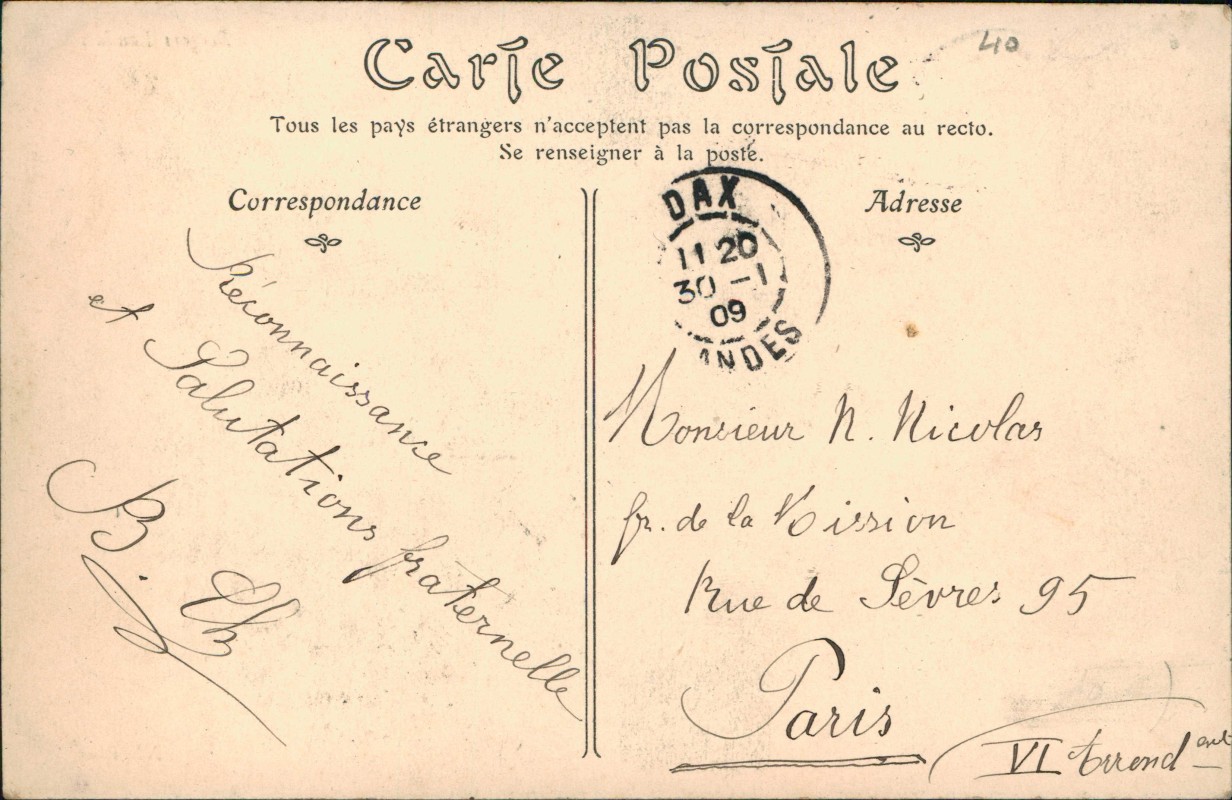 Carte Postale
40
Tous les pays étrangers n'acceptent pas la correspondance au recto.
Se renseigner à la poste.
Correspondance
Réconnaissance
et Salutations fraternelle
B. Th
Adresse
DAX
11 20
30 -1
09
ANDES
Monsieur N. Nicolas
fr. de la Mission
Rue de Sèvres 95
Paris
VI Arrondent